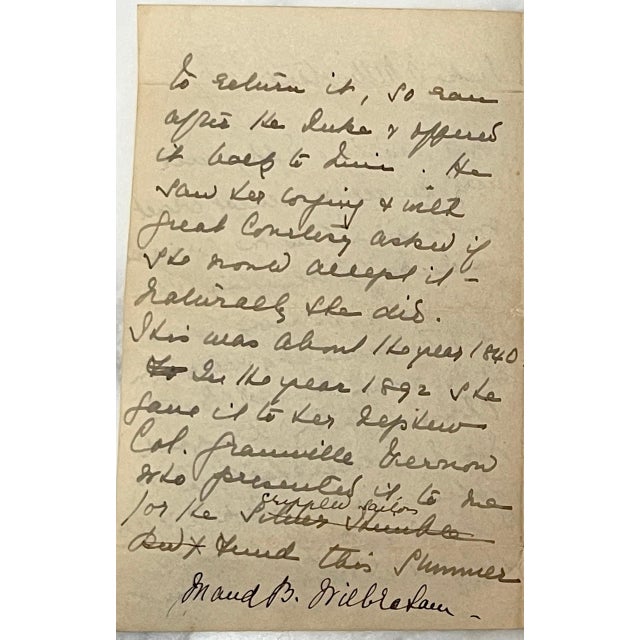 to return it, so ran
after the Duke & offered
it back to him. He
saw her crying & with
great Courtesy asked if
she would accept it -
Naturally she did.
This was about the year 1840.
In the year 1892 she
gave it to her nephew
Col. Granville Vernon
who presented it to me
crippled sailors
for the Silver Thimble
Fund this Summer
Maud B. Wilbraham -